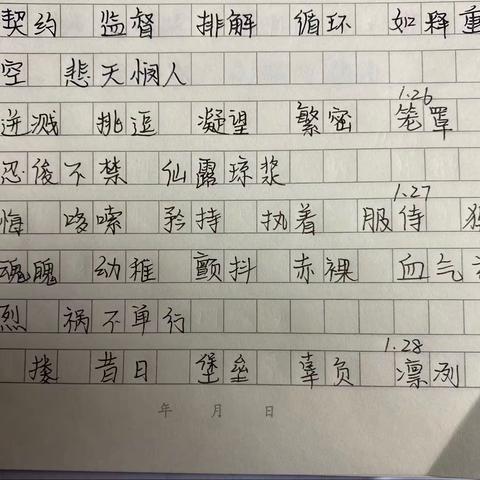 契约 监督 排解 循环 如释重
空 悲天悯人
1.26
迸溅 挑逗 凝望 繁密 笼罩
忍俊不禁 仙露琼浆
1.27
悔 哆嗦 矜持 执着 服侍
魂魄 幼稚 颤抖 赤裸 血气
烈 祸不单行
1.28
搂 昔日 堡垒 辜负 凛冽
年 月 日